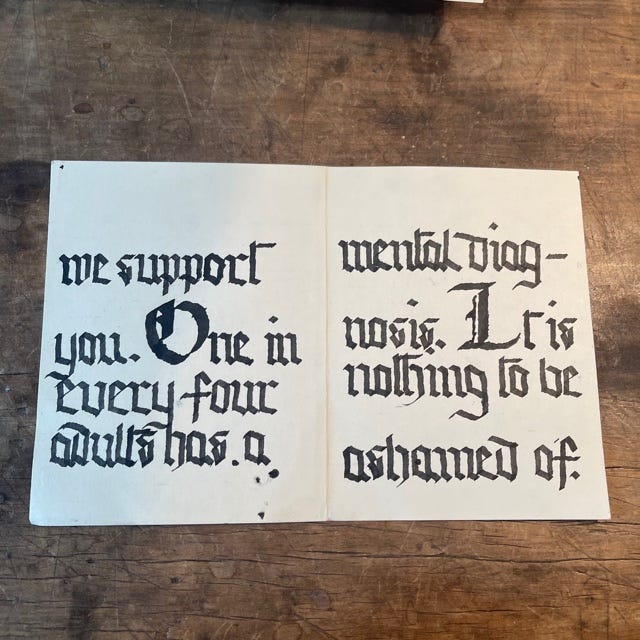 we support
you. One in
every four
adults has. a
mental diag-
nosis. It is
nothing to be
ashamed of.